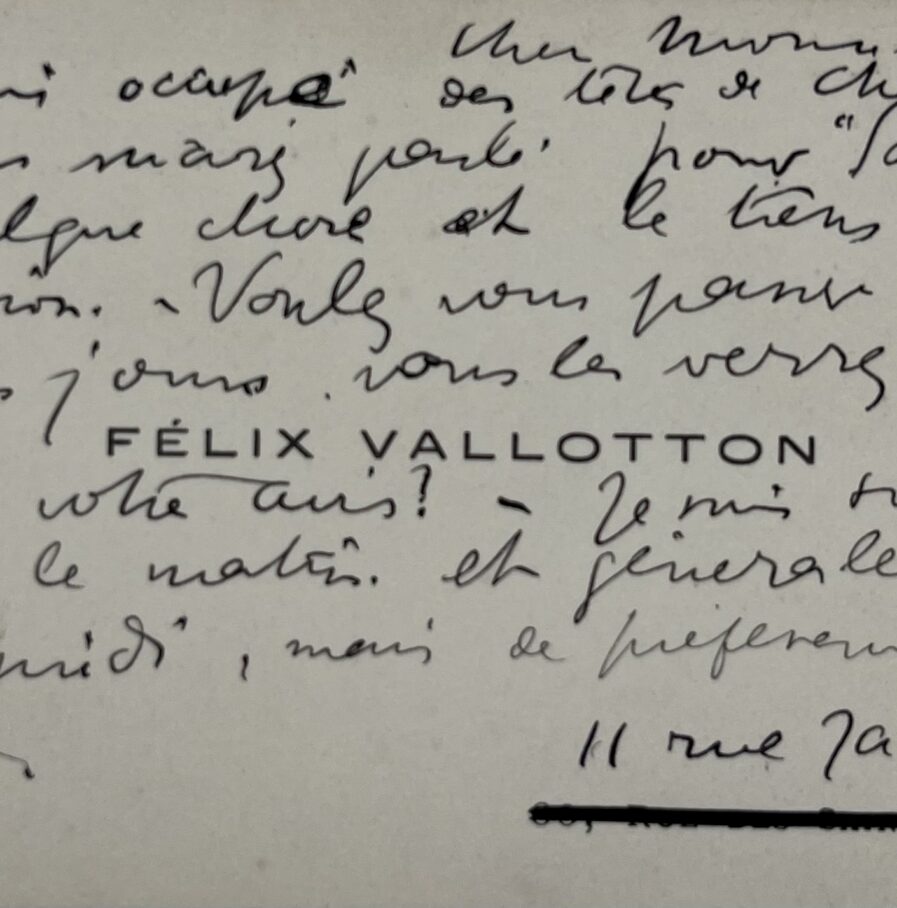 cher Mons
ai occupé des têtes de ch
s m'avez parlé pour "
lque chose et le tiens
ion. - Voulez vous passer
s jours. vous les verrez
FÉLIX VALLOTTON
votre avis? - Je suis
le matin. et générale
midi, mais de préféren
11 rue Ja